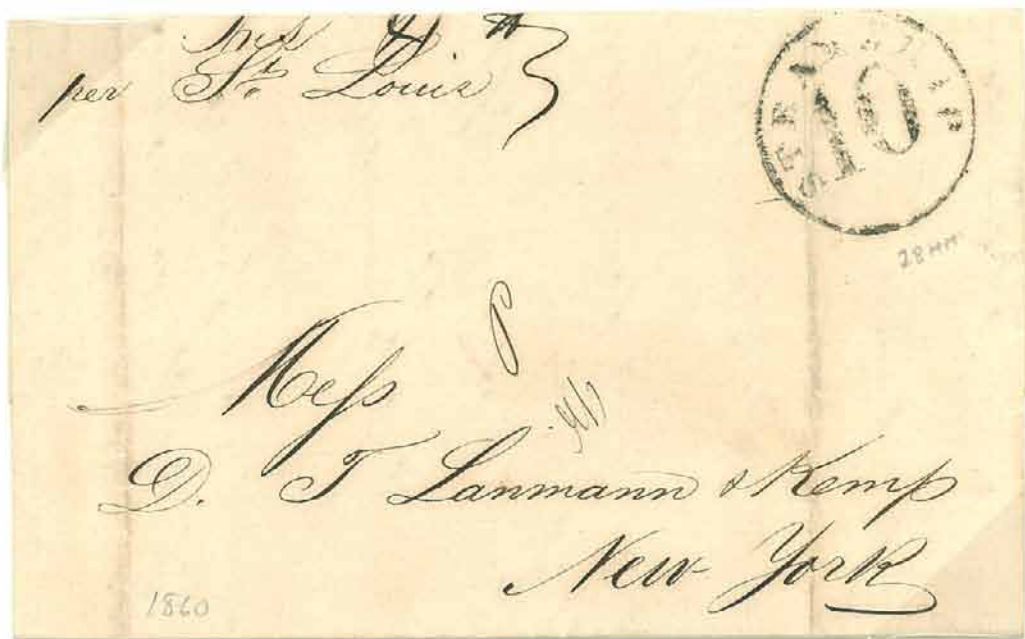 per St. Louis
STEAMSHIP
10
28 MM
Mess
D. T Lanmann & Kemp
New York
1860